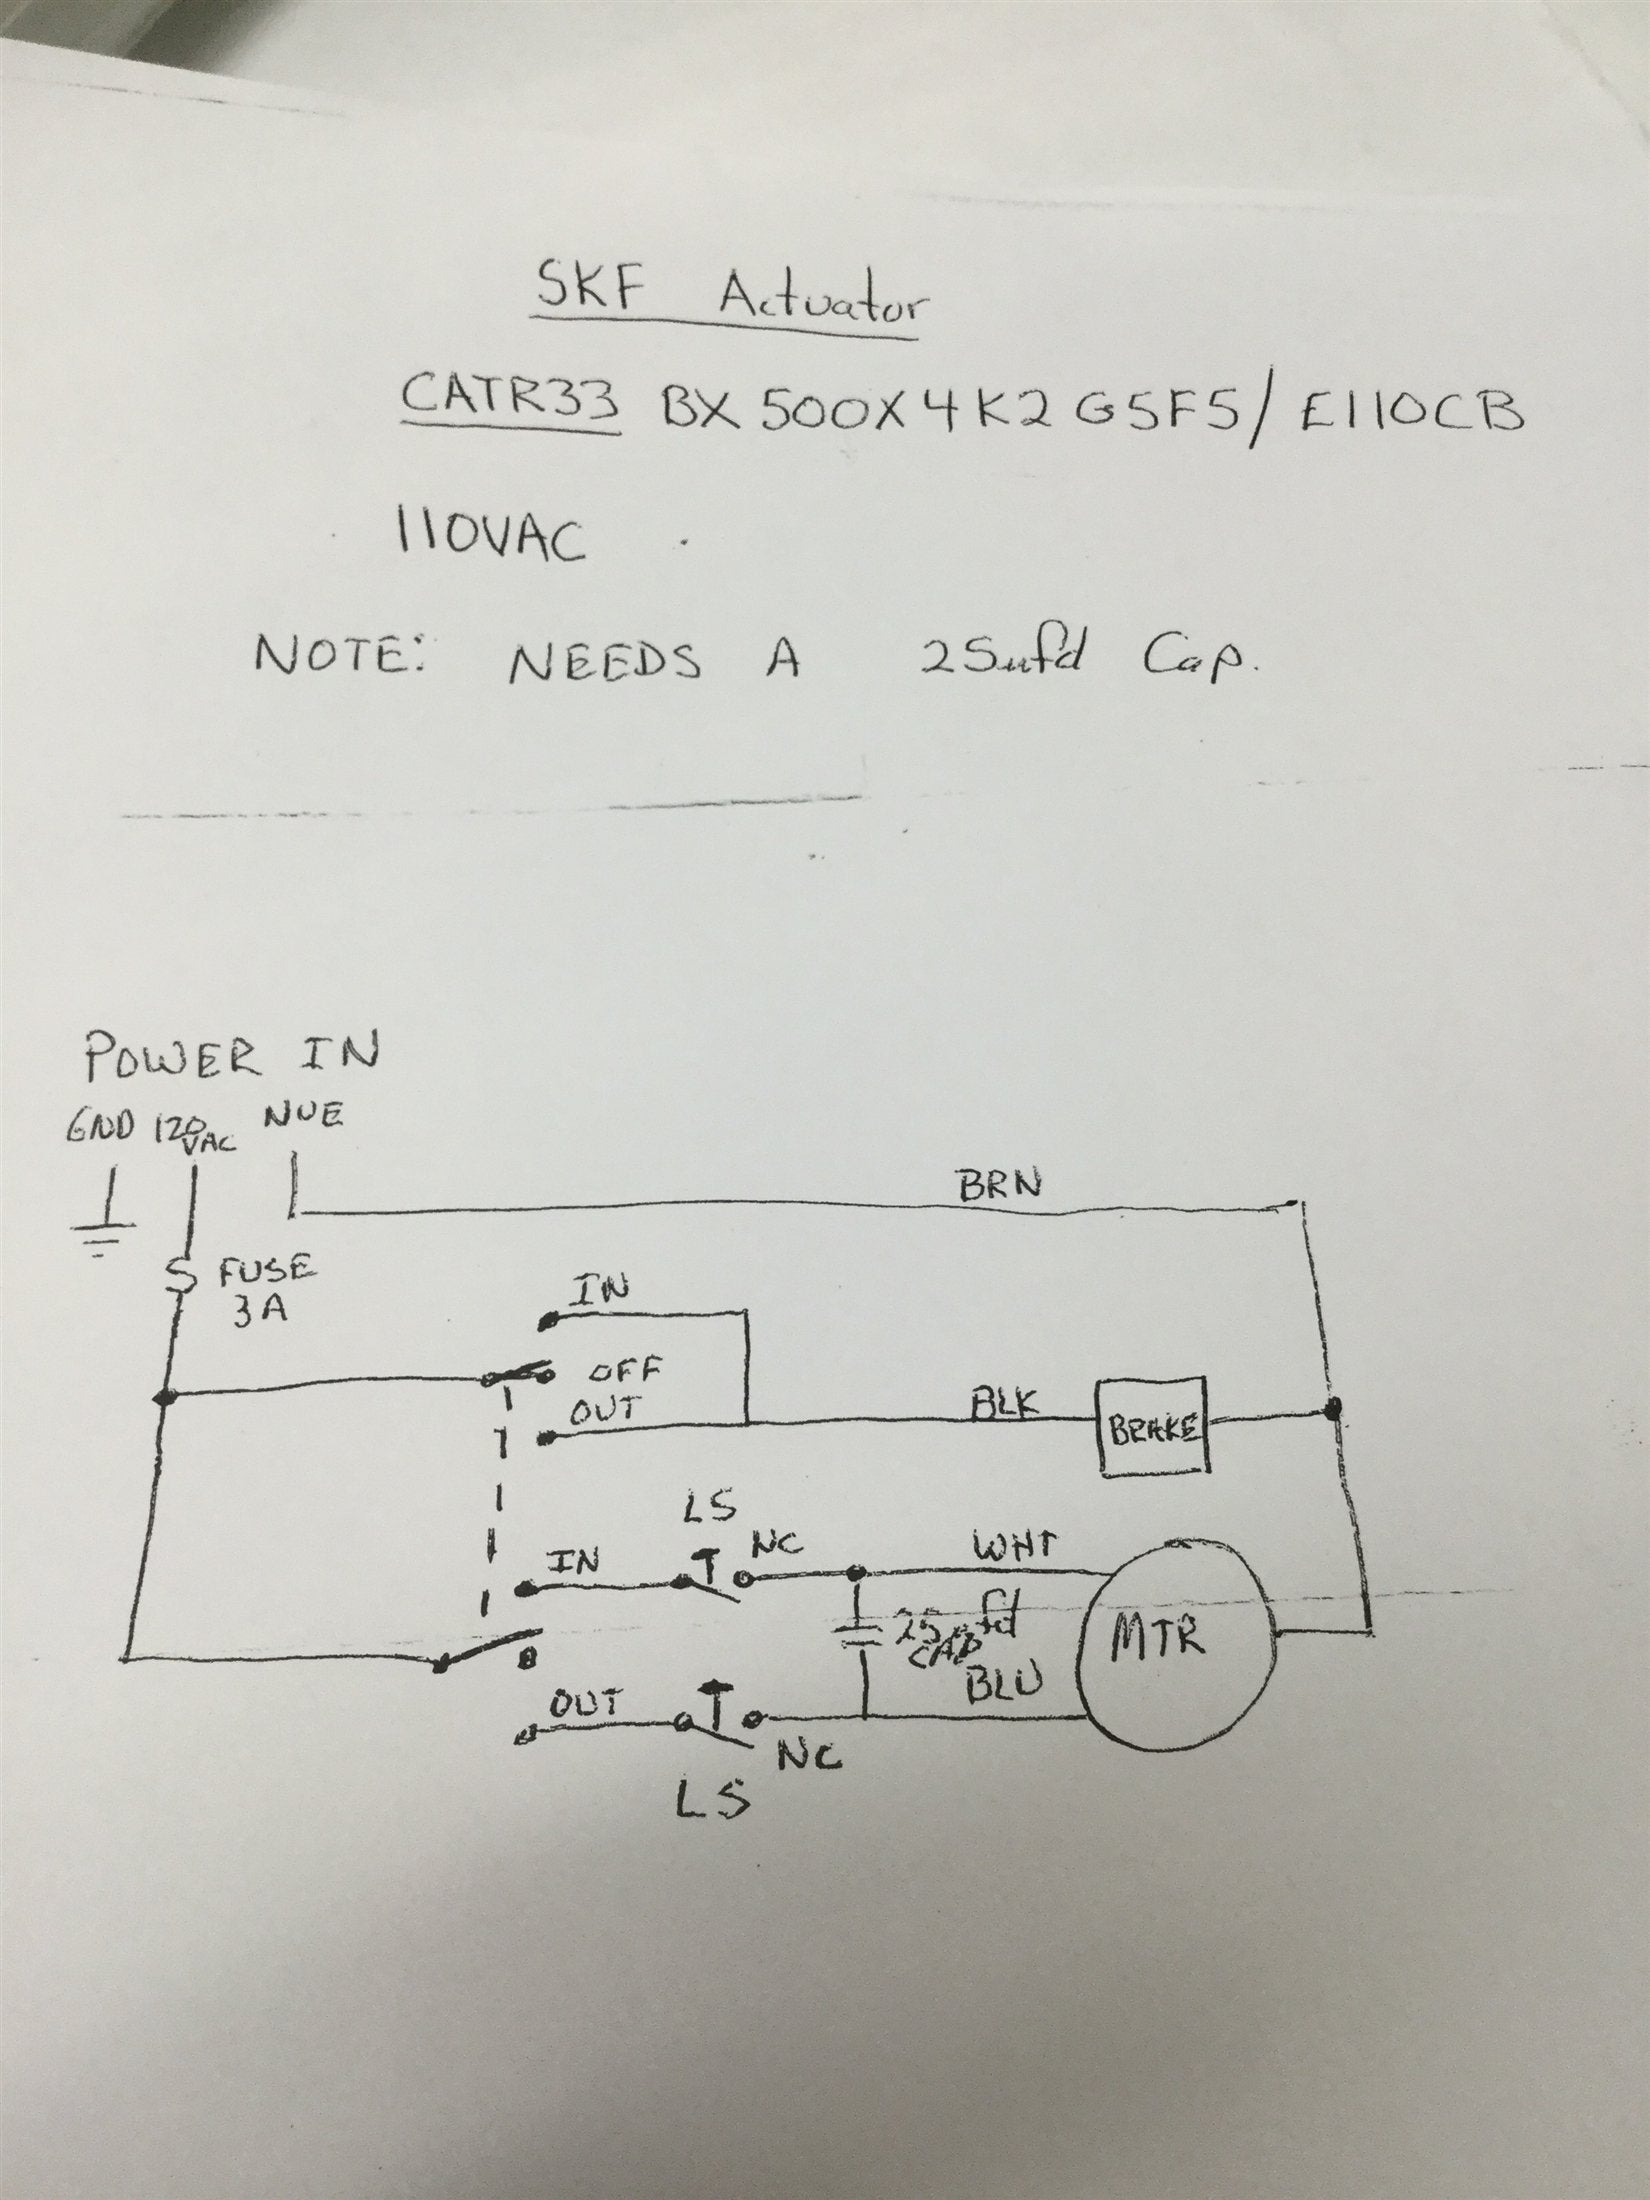 SKF Actuator
CATR33 BX 500X4K2G5F5/E110CB
110VAC
NOTE: NEEDS A 25ufd Cap.
POWER IN
GND 120 VAC NUE
BRN
FUSE
3A
IN
OFF
OUT
BLK
BRAKE
LS
NC
IN
WHT
25ufd
CAP
MTR
BLU
OUT
NC
LS